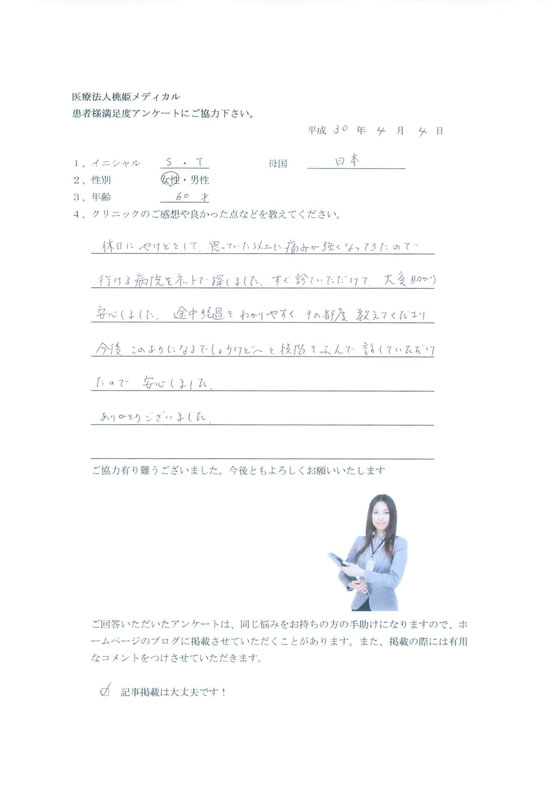 医療法人桃姫メディカル
患者様満足度アンケートにご協力下さい。
平成 30 年 4 月 4 日
1、イニシャル S・T 母国 日本
2、性別 女性・男性
3、年齢 60才
4、クリニックのご感想や良かった点などを教えてください。
休日にやけどをして、思っていた以上に痛みが強くなってきたので
行ける病院をネットで探しました。すぐ診ていただけて、大変助かり
安心しました。途中経過をわかりやすく その都度 教えてくださり
今後 このようになるでしょうけど〜と 段階をふんで 話していただけ
たので 安心しました。
ありがとうございました。
ご協力有り難うございました。今後ともよろしくお願いいたします
ご回答いただいたアンケートは、同じ悩みをお持ちの方の手助けになりますので、ホ
ームページのブログに掲載させていただくことがあります。また、掲載の際には有用
なコメントをつけさせていただきます。
記事掲載は大丈夫です！